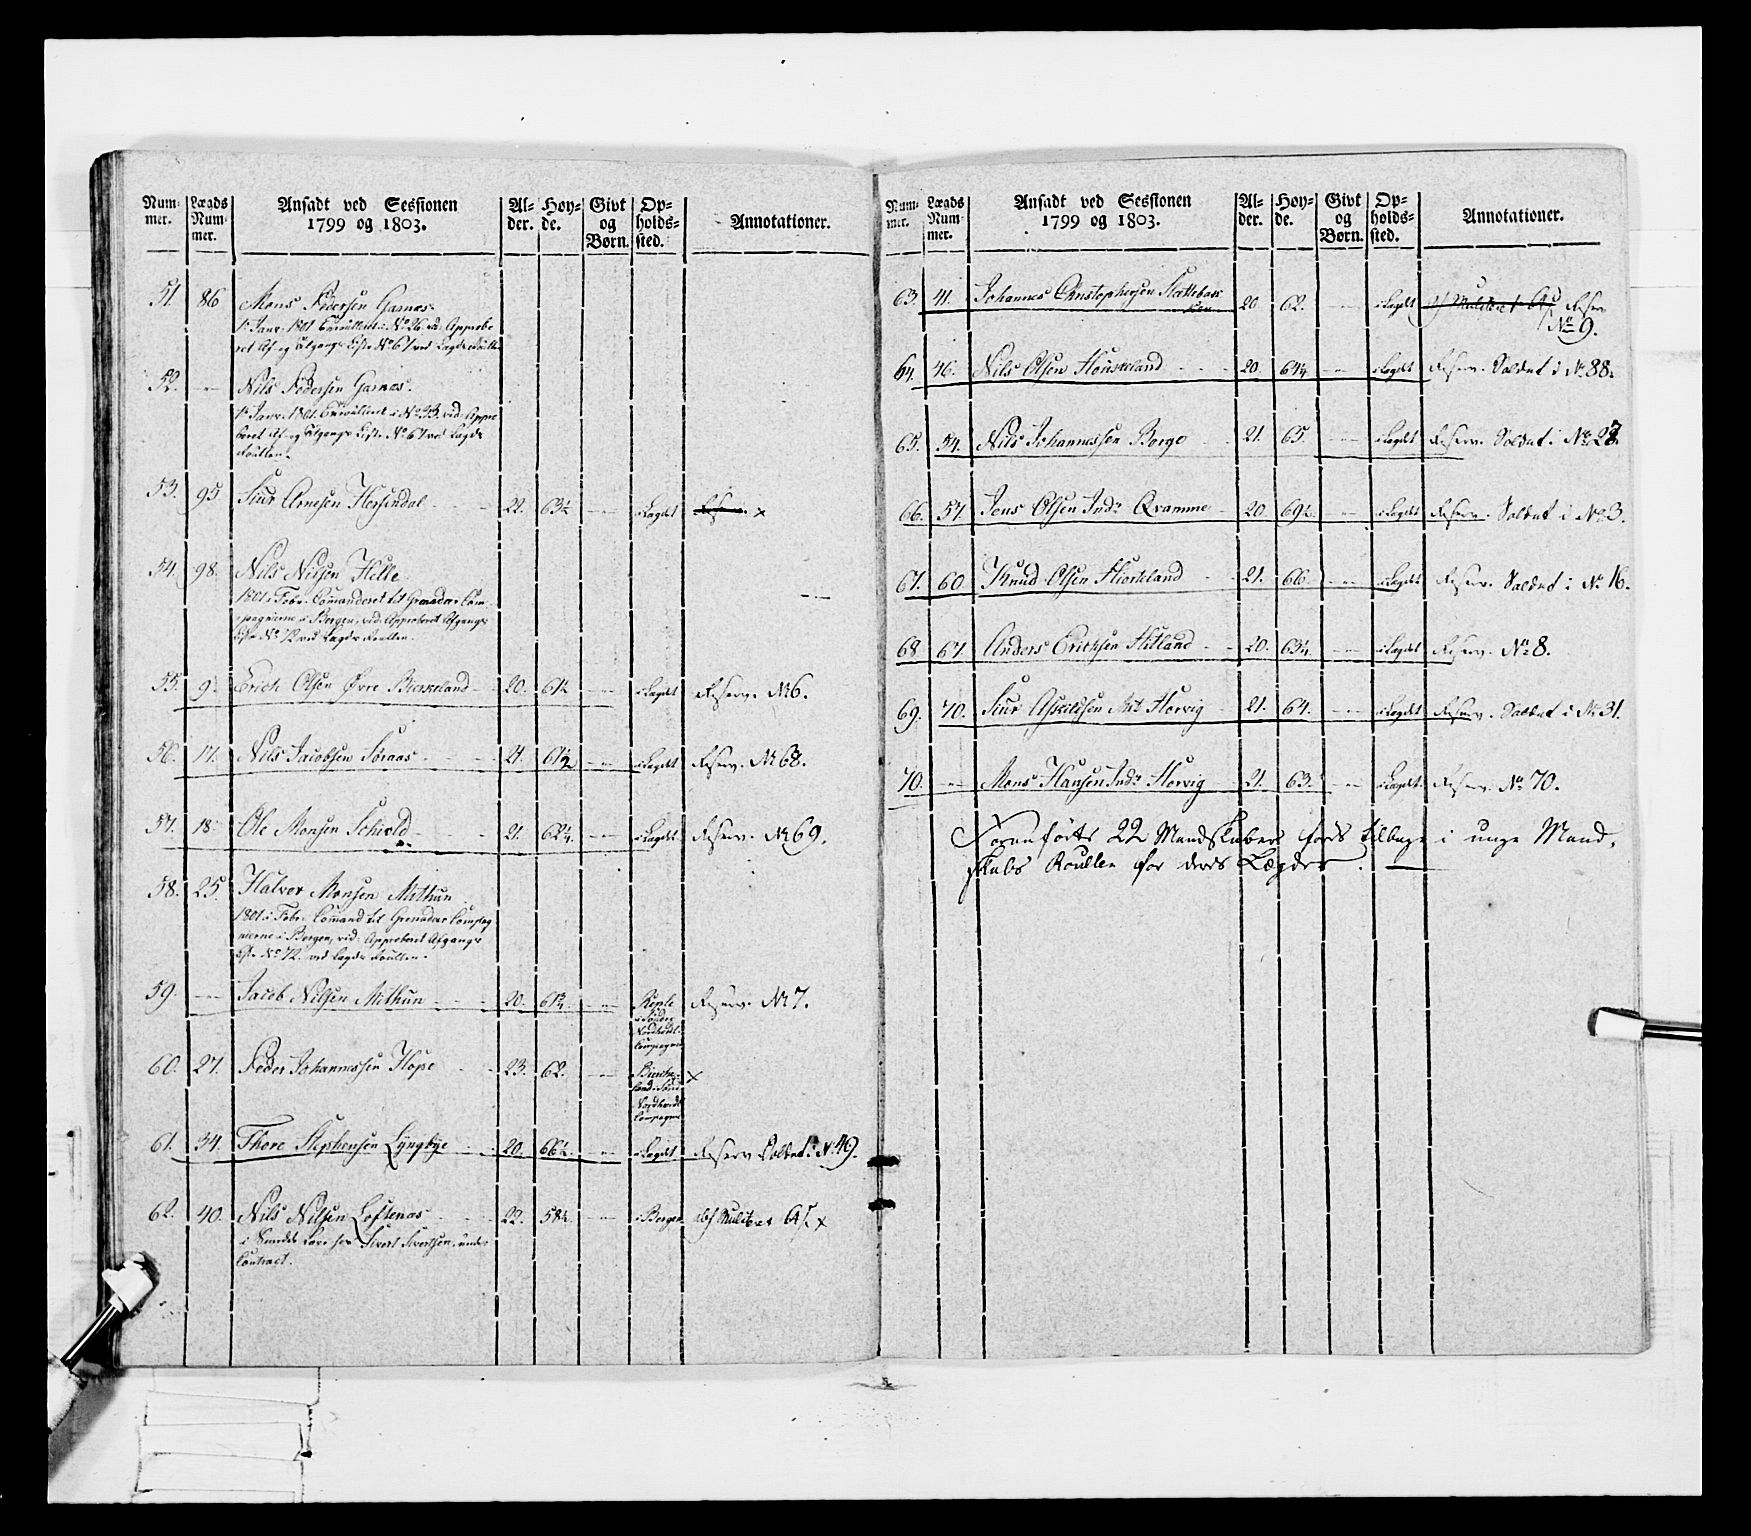 Num-
mer.
Lægds
Num-
mer.
Ansadt ved Sessionen
1799 og 1803.
Al-
der.
Høy-
de.
Givt
og
Børn.
Op-
holds-
sted.
Annotationer.
51. 86 Mons Pedersen Garnes.
1 Janr. 1801 Enroulleret i No 26. vid. Approbe
ret Af- og Tilgangs Liste No 67 ved Lægds Roullen
52. Nils Pedersen Garnes.
1 Janr. 1801. Enroulleret i No 33. vid. Appro
beret Af- og Tilgangs Liste No 67 ved Lægds
Roullen.
53. 95 Siur Arnesen Hersindal 22. 63½ i Lægdet Reserv. x
54. 98. Nils Nilsen Helle
1801 i Febr. Comanderet til Grenadeer Com-
pagnierne i Bergen, vid. Approberet Afgangs
Liste No 72 ved Lægds Roullen.
55. 9. Erich Olsen Øvre Birkeland 20. 61½ i Lægdet Reserv. No 6.
56. 17. Nils Jacobsen Søraas 21. 61½ i Lægdet Reserv. No 68.
57. 18. Ole Monsen Schiold 21. 62¼ i Lægdet Reserv. No 69.
58. 25. Halvor Monsen Mithun
1801 i Febr. Comand til Grenadeer Compag
nierne i Bergen, vid. Approberet Afgangs
Liste No 72. ved Lægds Roullen.
59. Jacob Nilsen Mithun 20. 61¾ Reserv. No 7.
i Søndre
Nordhordl.
Compagnie
60. 27. Peder Johannessen Hope 23. 62. x
Nordhordl
Compagnie
61. 34. Thore Stephensen Lyngbye 20. 66½ i Lægdet Reserv Soldat i No 49.
62. 40. Nils Nilsen Loftenæs 22. 58½ i Bergen x
i Lære hos Sivert Sivertsen under
Contract.
Num-
mer.
Lægds
Num-
mer.
Ansadt ved Sessionen
1799 og 1803.
Al-
der.
Høy-
de.
Givt
og
Børn.
Op-
holds-
sted.
Annotationer.
63. 41. Johannes Christophersen 20 62. i Lægdet Reserv
No 9.
64. 46. Nils Olsen Hønsland 20. 64¼ i Lægdet Reserv. Soldat i No 88.
65. 54. Nils Johannessen Borge 21. 65. i Lægdet Reserv. Soldat i No 27
66. 57. Jens Olsen Indr Qvamme 20 69½ i Lægdet Reserv. Soldat i No 3.
67. 60. Knud Olsen Hiorland 21. 66. i Lægdet Reserv. Soldat i No 16.
68 67. Anders Erichsen Hitland 20. 63¼ i Lægdet Reserv. No 8.
69. 70. Siur Askildsen Horvig 21. 64. i Lægdet Reserv. Soldat i No 31.
70. Mons Hansen Indr Horvig 21. 63. i Lægdet. Reserv. No 70.
Foranførte 22 Mandskaber føres tilbage i unge Mand-
skabs Roullen for deres Lægder.